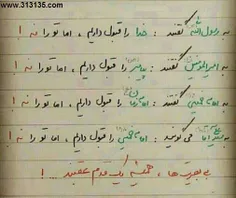 www.313135.com
به رسول الله گفتند : خدا را قبول داریم ، اما تو را نه !
به امیرالمؤمنین گفتند : پیامبر را قبول داریم ، اما تو را نه !
به امام خمینی گفتند : امام زمان را قبول داریم ، اما تو را نه !
به امام می گویند : امام خمینی را قبول داریم ، اما تو را نه !
بی بصیرت ها ، همیشه یک قدم عقبند ... !